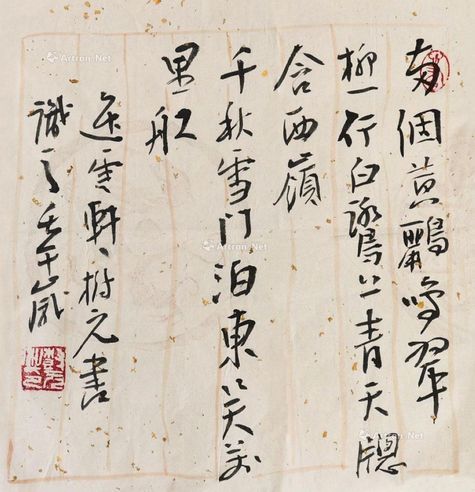 兩個黃鸝鳴翠
柳一行白鷺上青天牕
含西嶺
千秋雪門泊東吴万
里舡
雲軒樹元書
識之壬午歲
Artron.Net
Artron.Net
Artron.Net
Artron.Net